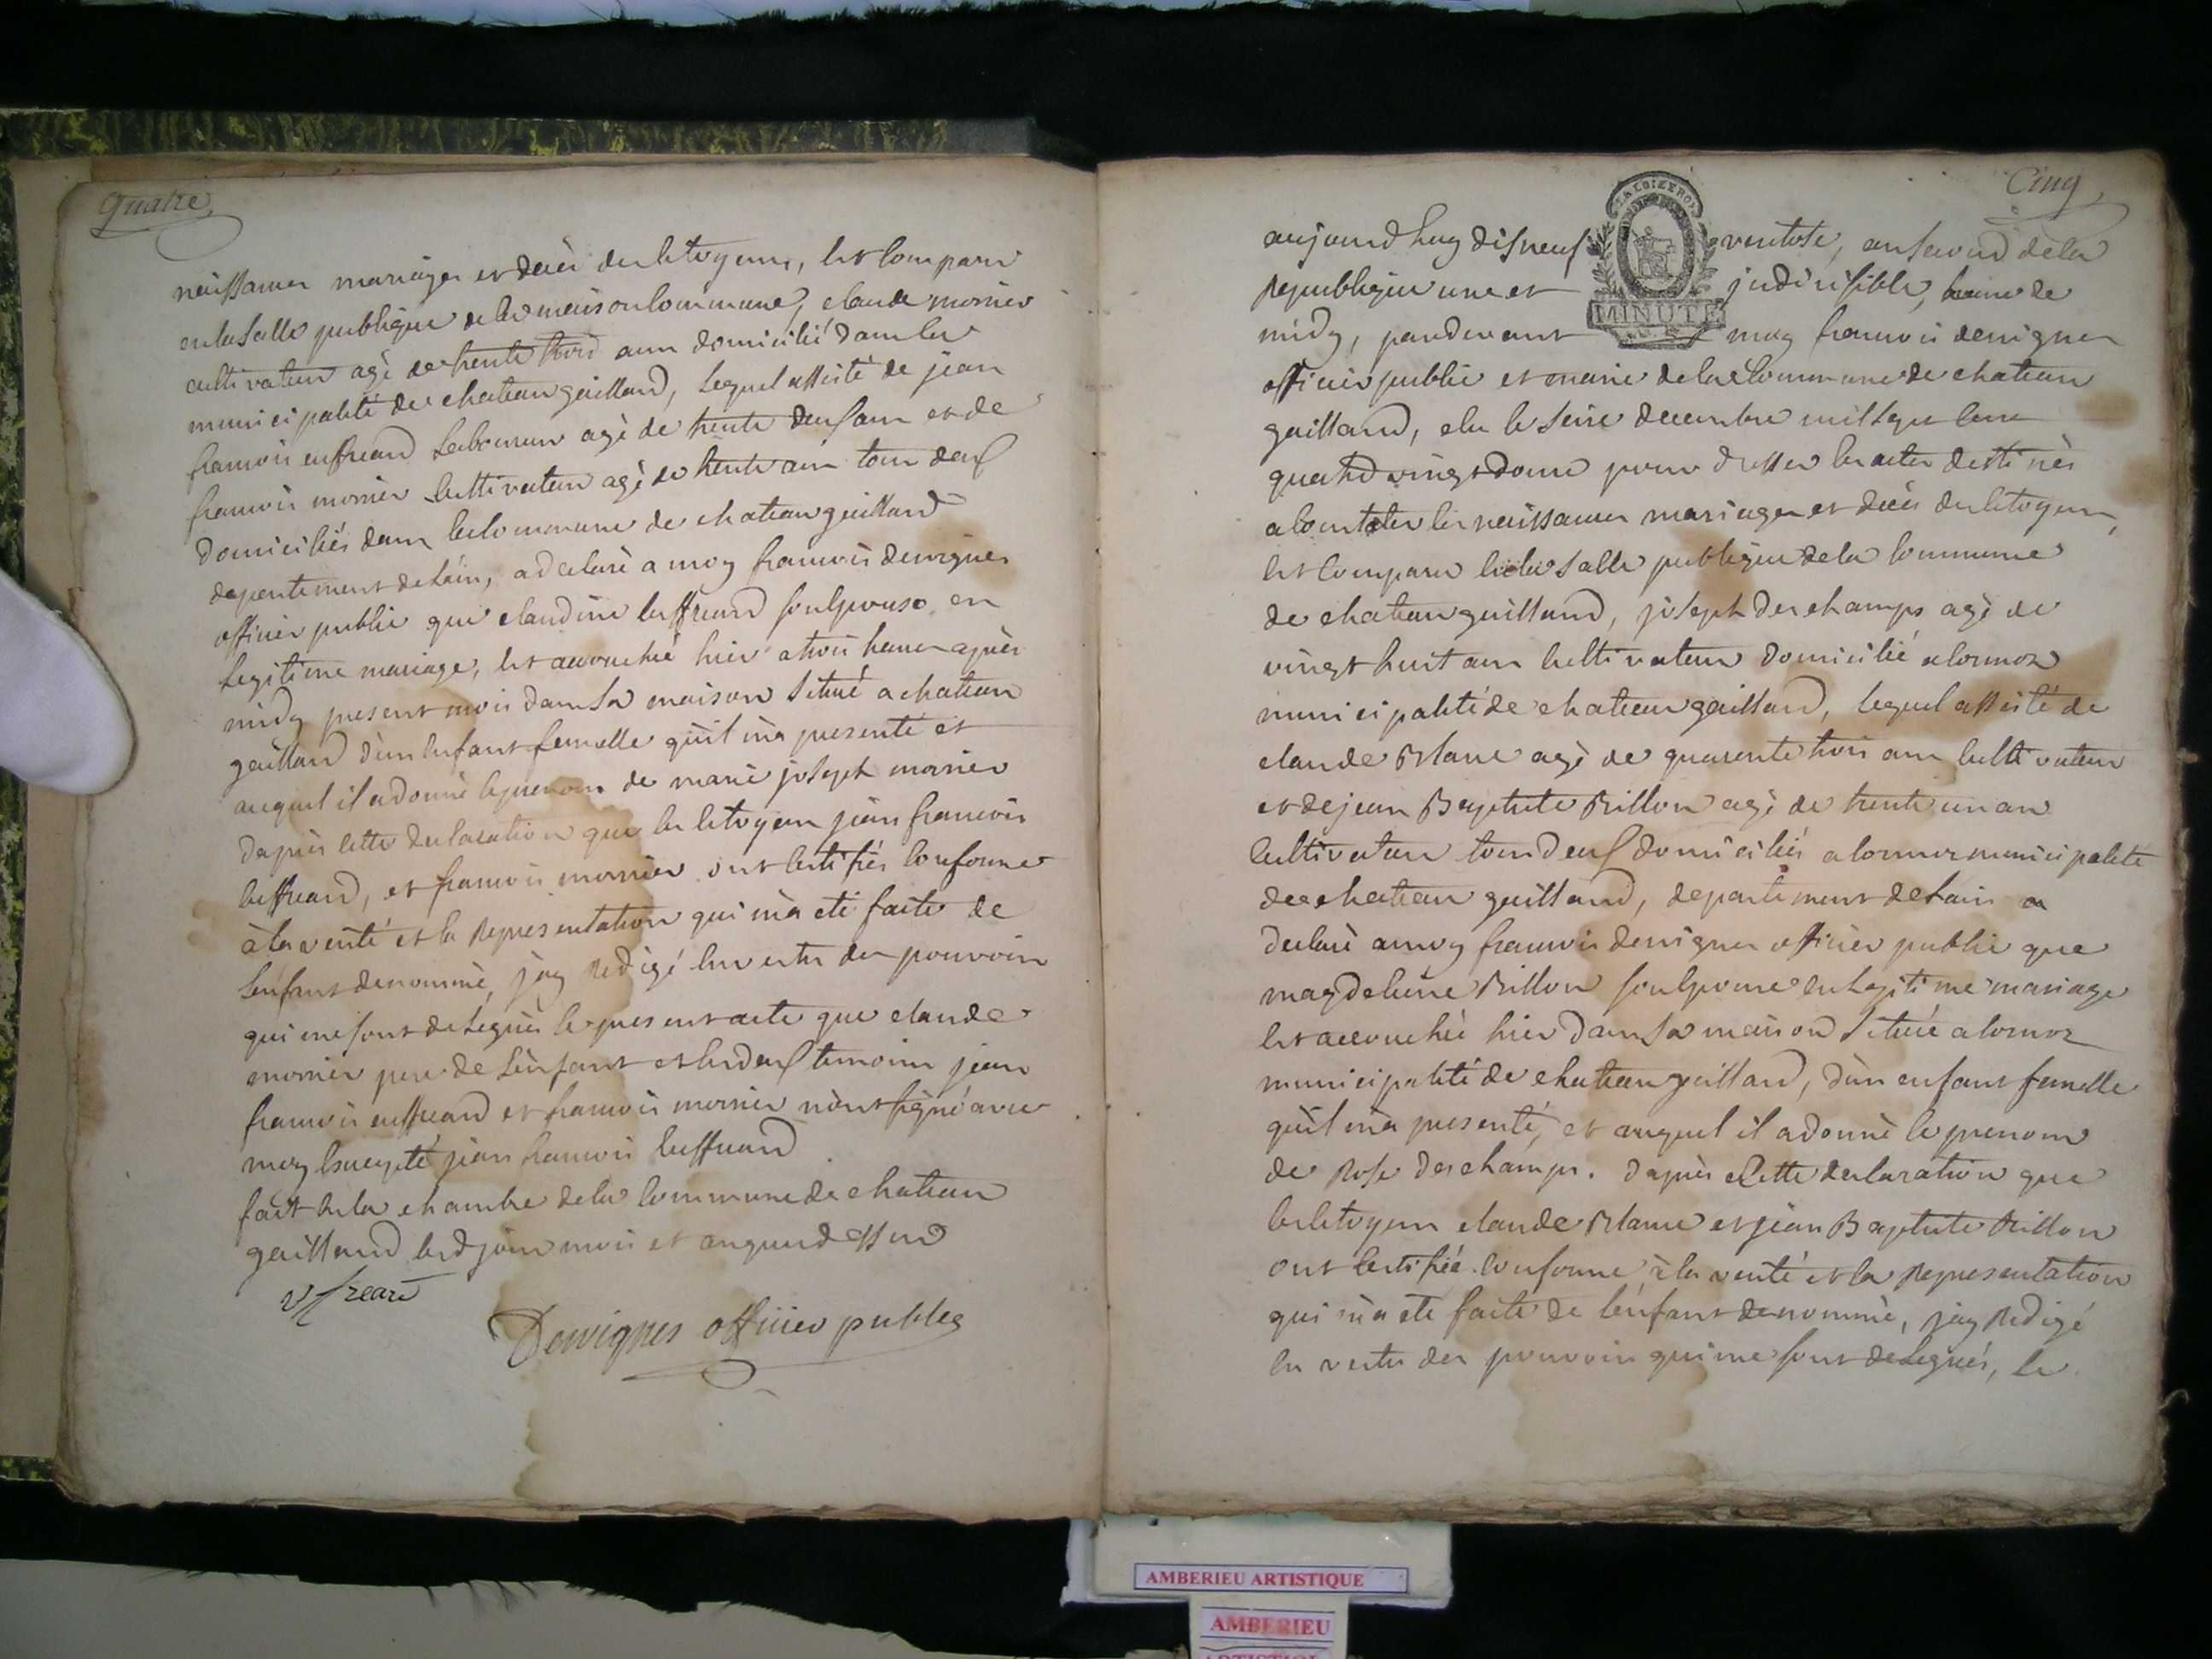 quatre
naissances mariages et décès des citoyens, est comparu
en la salle publique de la maison commune, claude monier
cultivateur agè de trente trois ans domicilié dans la
municipalité de chateau gaillard, lequel assisté de jean
francois euffreard laboureur agè de trente deux ans et de
francois monier cultivateur agè de trente ans tous deux
domiciliés dans la commune de chateau gaillard
departement de lain, a declaré a moy francois desvignes
officier public que claudine euffreard son epouse en
legitime mariage, est accouchée hier a trois heures après
midy present mois dans sa maison situé a chateau
gaillard d'un enfant femelle qu'il m'a presenté et
auquel il a donné le prenom de marie joseph monier
d'après cette declaration que les citoyens jean francois
euffreard, et francois monier ont certifiés conforme
à la verité et la representation qui m'a été faite de
l'enfant denommè, jay redigé en vertu des pouvoirs
qui me sont delegués le present acte que claude
monier pere de l'enfant et les deux temoins jean
francois euffreard et francois monier n'ont signé avec
moy excepté jean francois euffreard
fait en la chambre de la commune de chateau
gaillard les jour mois et an que dessus
Desvignes officier public
Cinq
LA LOI LE ROI
MINUTE
aujourdhuy disneuf ventose, an second de la
Republique une et indivisible, heure de
midy, pardevant moy francois desvignes
officier public et maire de la commune de chateau
gaillard, elu le seize decembre mil sept cent
quatre vingt douze pour dresser les actes destinès
a constater les naissances mariages et décès des citoyens,
est comparu en la salle publique de la commune
de chateau gaillard, joseph deschamps agè de
vingt huit ans cultivateur domicilié a cormoz
municipalité de chateau gaillard, lequel assisté de
claude Blanc agè de quarente trois ans cultivateur
et de jean Baptiste Billon agè de trente un an
cultivateur tous deux domiciliés a cormoz municipalité
de chateau gaillard, departement de lain a
declaré a moy francois desvignes officier public que
magdeleine Billon son epouse en legitime mariage
est accouchée hier dans sa maison située a cormoz
municipalité de chateau gaillard, d'un enfant femelle
qu'il m'a presenté, et auquel il a donnè le prenom
de Rose deschamps. d'après cette declaration que
les citoyens claude Blanc et jean Baptiste Billon
ont certifiée conforme à la verité et la representation
qui m'a eté faite de l'enfant denommè, jay redigé
en vertu des pouvoirs qui me sont delegués, le
AMBERIEU ARTISTIQUE
AMBERIEU